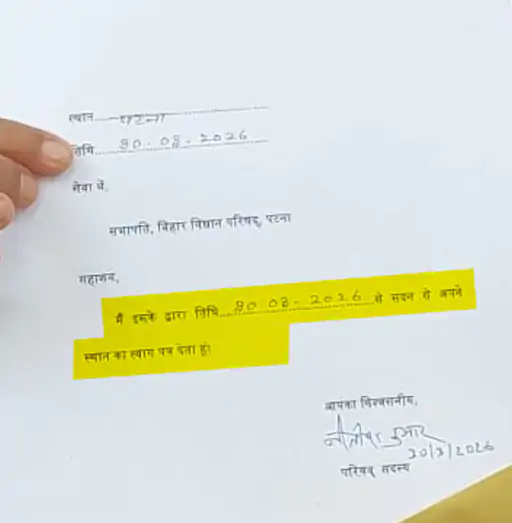 स्थान पटना
तिथि 30.03.2026
सेवा में,
सभापति, बिहार विधान परिषद्, पटना
महाशय,
मैं इसके द्वारा तिथि 30.03.2026 से सदन से अपने
स्थान का त्याग पत्र देता हूं।
आपका विश्वसनीय,
नीतीश कुमार
30/3/2026
परिषद् सदस्य